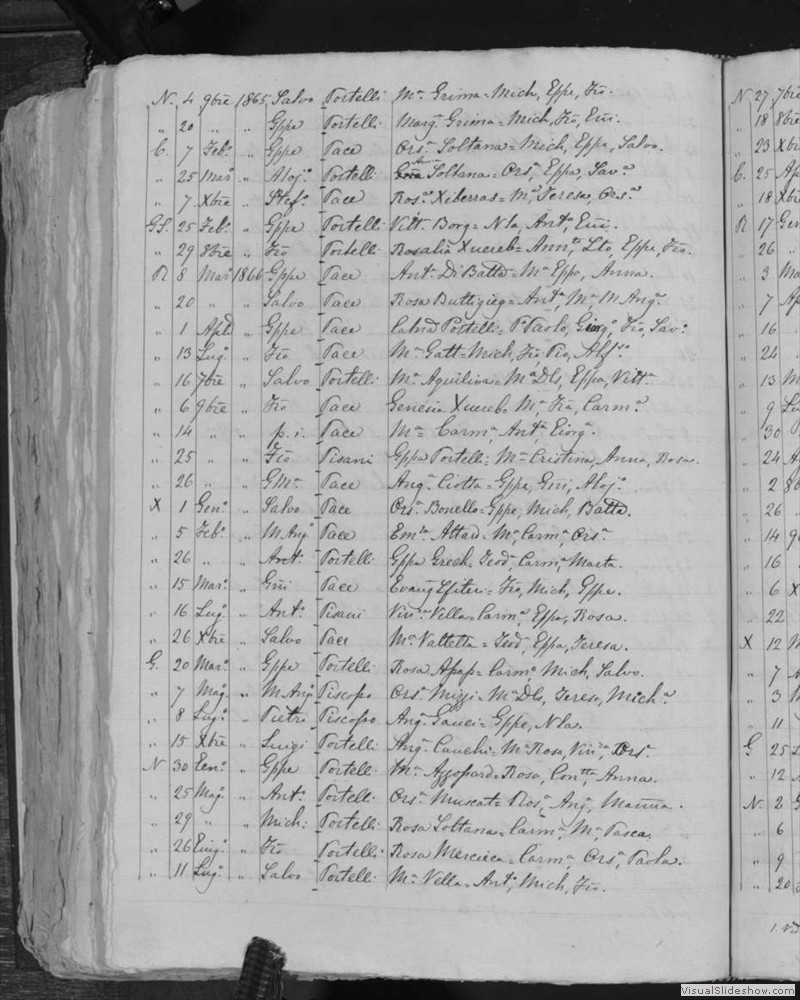 N. 4 9bre 1865 Salvo Portelli Mª Grima = Mich, Eppe, Fro.
" 20 " " Gppe Portelli Marg. Grima = Mich, Fro, Em.
C. 7 Febº " Gppe Pace Orsª Soltana = Mich, Eppe, Salvo.
" 25 Marº " Alojº Portelli Soltana = Orsª, Eppa, Savª
" 7 Xbre " Stefº Pace Rosª Xiberras = Mª, Teresa, Orsª
GS. 25 Febº " Gppe Portelli Vittª Borg = Nla, Antª, Em.
" 29 8bre " Fro Portelli Rosalia Xuereb = Annta, Lto, Eppe, Fro.
R 8 Marº 1866 Gppe Pace Antª Di Batta = Mª Eppa, Anna.
" 20 " " Salvo Pace Rosa Buttigieg = Antª, Mª M Angª
" 1 Aple " Gppe Pace Calcid Portelli = P Paolo, Giorgº, Fro, Savº
" 13 Lugº " Fro Pace Mª Gatt = Mich, Fro Pio, Alfsº
" 16 7bre " Salvo Portelli Mª Aquilina = Mª Dls, Eppa, Vittª
" 6 9bre " Fro Pace Genesia Xuereb = Mª, Fra, Carmª
" 14 " " p. i. Pace Mª = Carmª Antª, Giorgª
" 25 " " Fro Pisani Gppa Portelli = Mª Cristina, Anna, Rosa.
" 26 " " G Mª Pace Angª Ciotta = Gppe, Gni, Alojº
X 1 Genº " Salvo Pace Orsª Bonello = Gppe, Mich, Batta.
" 5 Febº " M Angº Pace Emta Attard = Mª Carmª, Orsª
" 26 " " Antº Portelli Gppa Grech = Teod, Carmª, Marta.
" 15 Marº " Gni Pace Evang Spiteri = Fro, Mich, Gppe.
" 16 Lugº " Antº Pisani Vinª Vella = Carmª, Eppa, Rosa.
" 26 Xbre " Salvo Pace Mª Valletta = Teod, Eppa, Teresa.
G. 20 Marº " Gppe Portelli Rosa Apap = Carmº, Mich, Salvo.
" 7 Magº " M Angº Piscopo Orsª Mizzi = Mª Dls, Teresa, Michª
" 8 Lugº " Pietro Piscopo Angª Gauci = Gppe, Nla.
" 15 Xbre " Luigi Portelli Angª Cauchi = Mª Rosa, Vinza, Orsª
N 30 Genº " Gppe Portelli Mª Azzopardi = Rosa, Contta, Anna.
" 25 Magº " Antº Portelli Orsª Muscat = Rosª, Angª, Marina.
" 29 " " Mich: Portelli Rosa Soltana = Carmª, Mª Pasca.
" 26 Giugº " Fro Portelli Rosa Mercieca = Carmª Orsª, Paola.
" 11 Lugº " Salvo Portelli Mª Vella = Antº, Mich, Fro.
N 27 7bre
" 18 8bre
" 23 Xbre
C. 25 Ap
" 18 Xbre
R 17 Gen
" 26 "
" 3 Ma
" 7 Ap
" 16
" 24
" 13 M
" 9 Lu
" 30
" 24 A
" 2
" 26
" 14 9
" 16
" 6 X
" 22
X 12 M
" 7 A
" 3 M
" 11
G 25 L
" 12
N. 2 G
" 6
" 9
" 20
VisualSlideshow.com